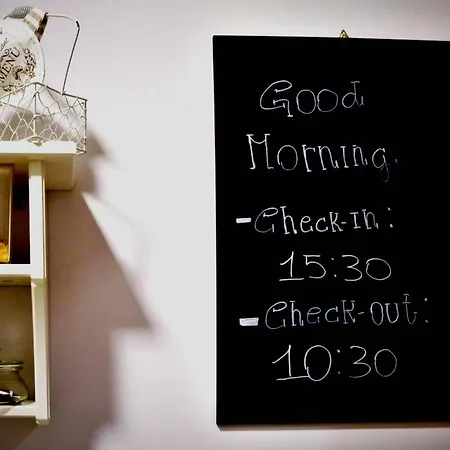 MENU
Good
Morning.
- Check-in:
15:30
- Check-out:
10:30